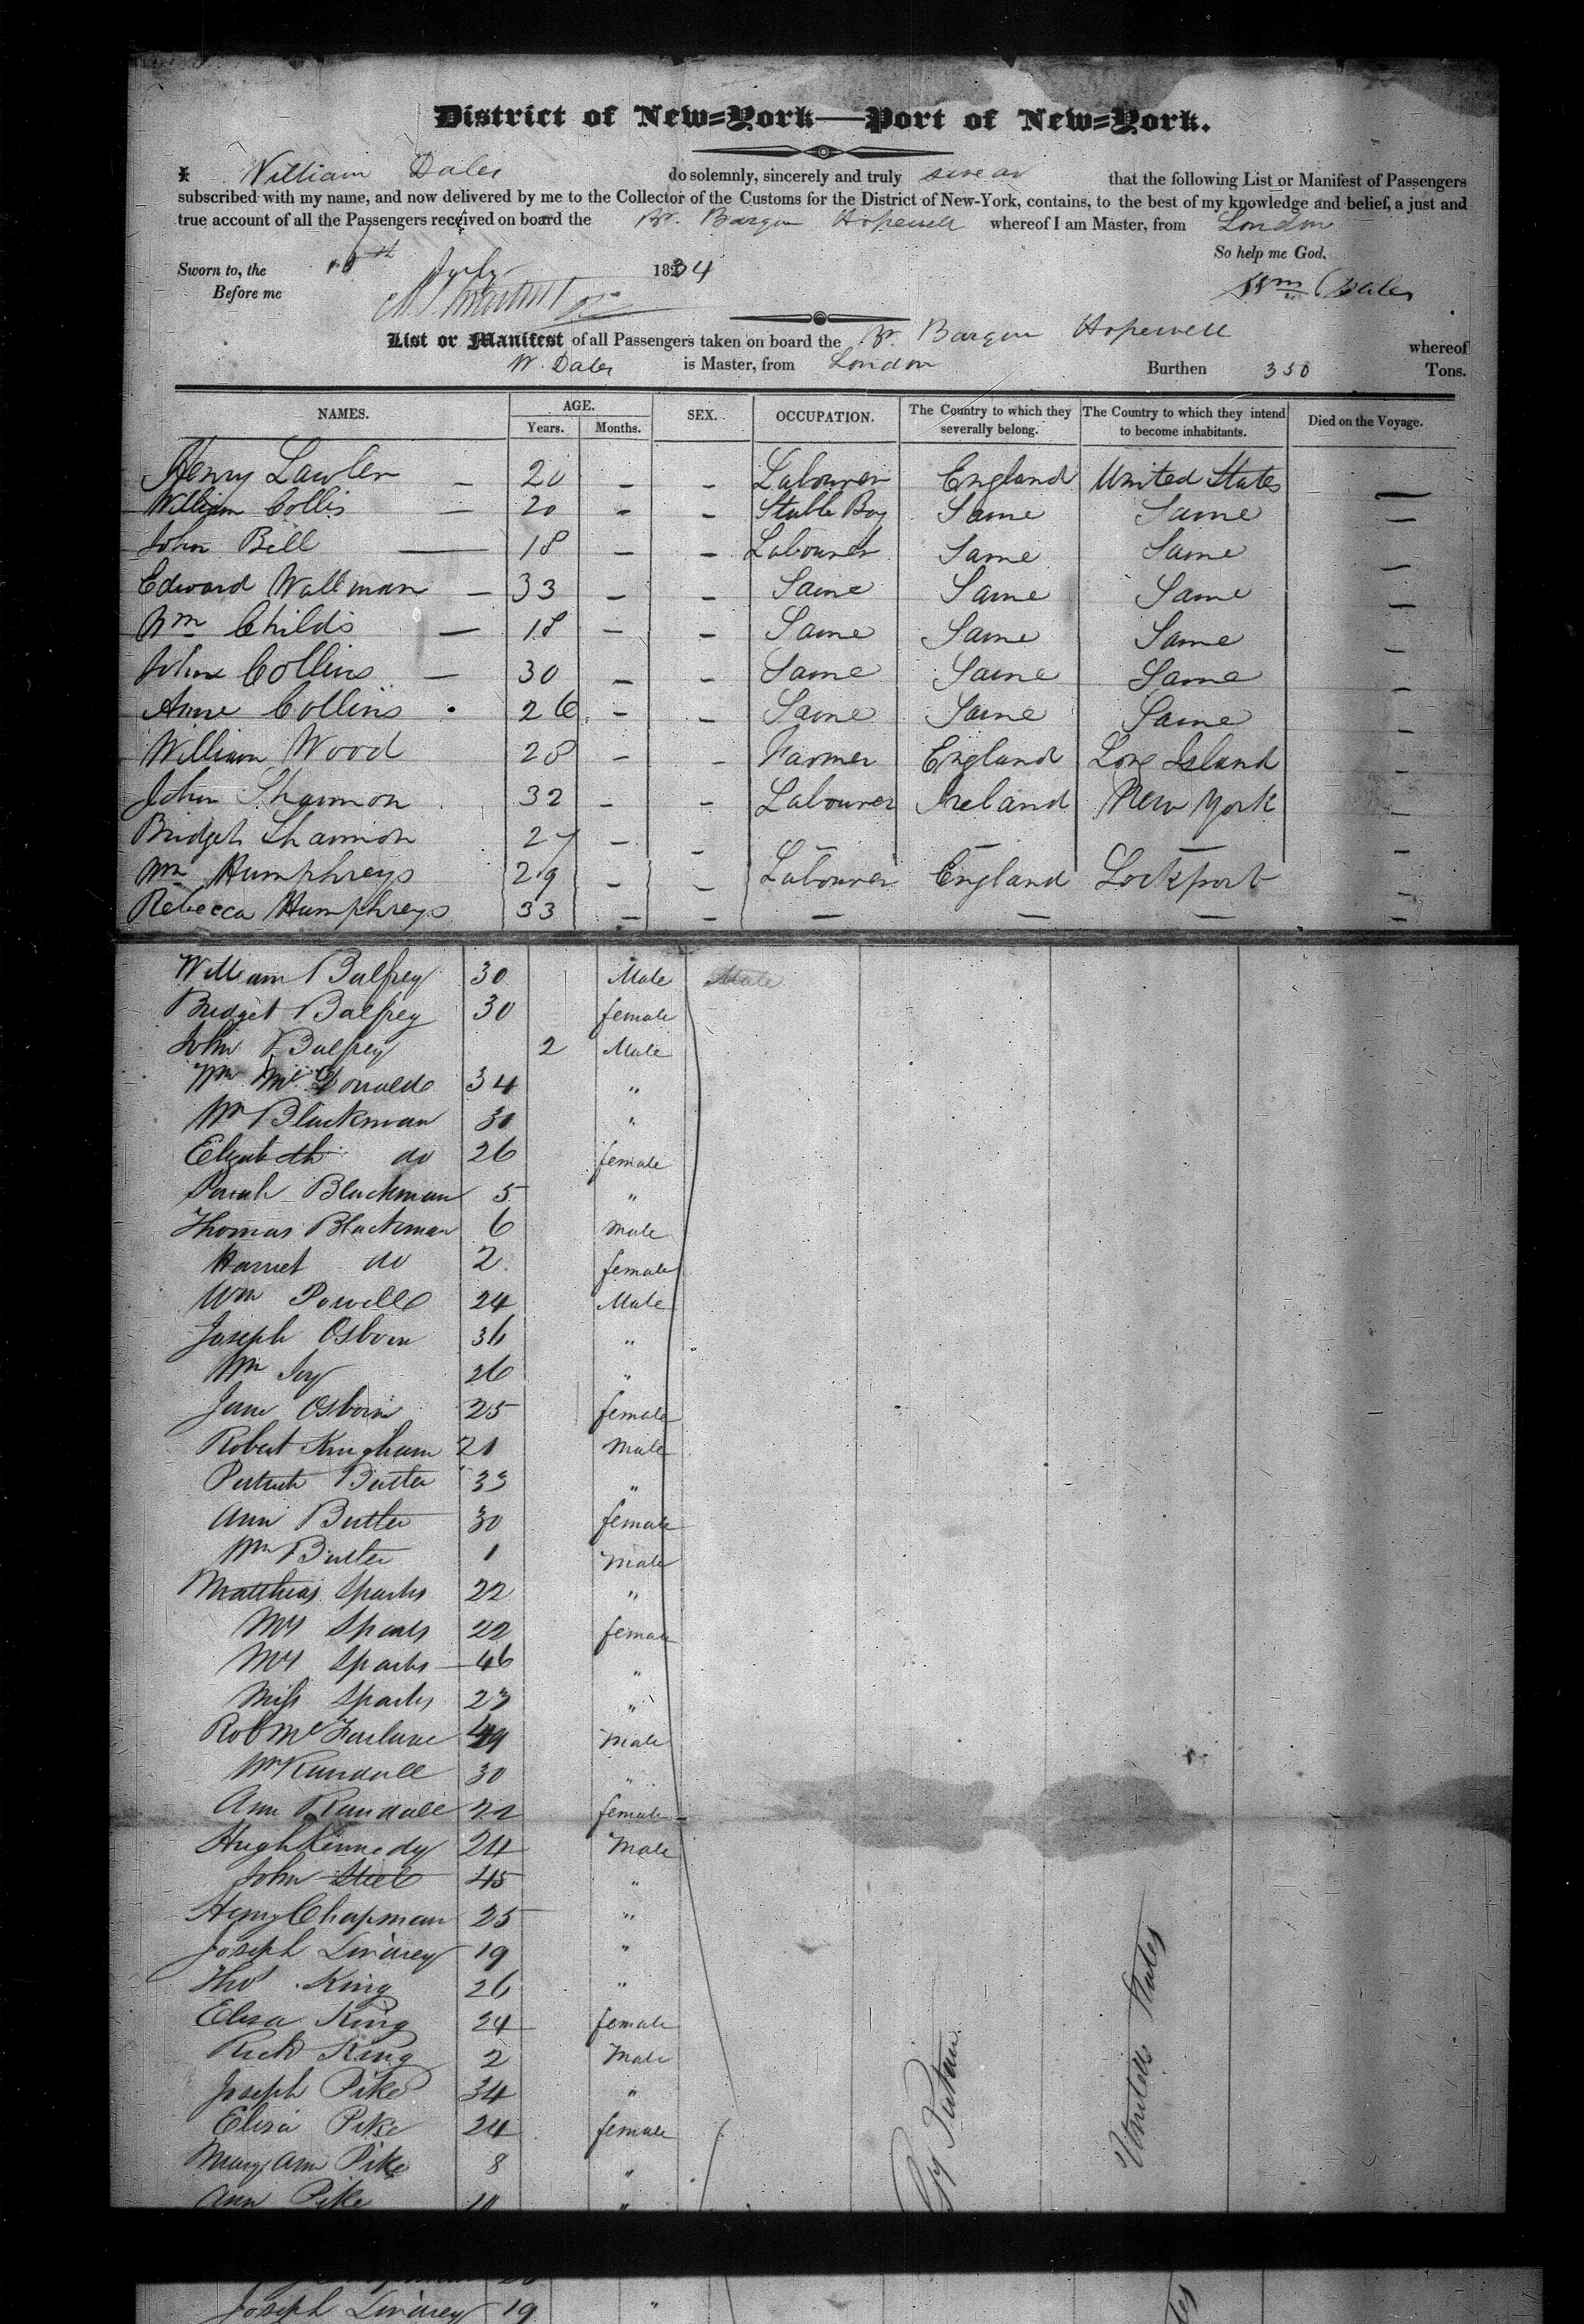 District of New=York—Port of New=York.
I William Dales do solemnly, sincerely and truly swear that the following List or Manifest of Passengers
subscribed with my name, and now delivered by me to the Collector of the Customs for the District of New-York, contains, to the best of my knowledge and belief, a just and
true account of all the Passengers received on board the Br. Barque Hopewell whereof I am Master, from London
So help me God.
Sworn to, the July 1834
Before me Wm Dales
List or Manifest of all Passengers taken on board the Br. Barque Hopewell whereof
W. Dales is Master, from London Burthen 350 Tons.
NAMES. AGE. SEX. OCCUPATION. The Country to which they severally belong. The Country to which they intend to become inhabitants. Died on the Voyage.
Years. Months.
Henry Lawler — 20 — — Labourer England United States —
William Collis — 20 — — Stable Boy Same Same —
John Bill — 18 — — Labourer Same Same —
Edward Wallman — 33 — — Same Same Same —
Wm Childs — 18 — — Same Same Same —
John Collins — 30 — — Same Same Same —
Anne Collins 26 — — Same Same Same —
William Wood 28 — — Farmer England Long Island —
John Shannon 32 — — Labourer Ireland New York —
Bridget Shannon 27 — — — — — —
Wm Humphreys 29 — — Labourer England Lockport —
Rebecca Humphreys 33 — — — — — —
William Balfrey 30 Male Male
Bridget Balfrey 30 female
John Balfrey 2 Male
Wm McDonald 34 "
Wm Blackman 30 "
Elizabeth do 26 female
Sarah Blackman 5 "
Thomas Blackman 6 Male
Harriet do 2 female
Wm Powell 24 Male
Joseph Osborn 36 "
Wm Ivy 26 "
Jane Osborn 25 female
Robert Kingham 21 Male
Patrick Butler 33 "
Ann Butler 30 female
Wm Butler 1 Male
Matthias Sparks 22 "
Mrs Sparks 22 female
Mrs Sparks 46 "
Miss Sparks 23 "
Rob McFarlane 49 Male
Wm Randall 30 "
Ann Randall 22 female
Hugh Kennedy 24 Male
John Steel 45 "
Henry Chapman 25 "
Joseph Lindsey 19 "
Thos King 26 "
Eliza King 24 female
Richd King 2 Male
Joseph Pike 34 "
Eliza Pike 24 female
Mary Ann Pike 8 "
Ann Pike 10 "
Gt Britain
United States
Joseph Lindsey 19 "